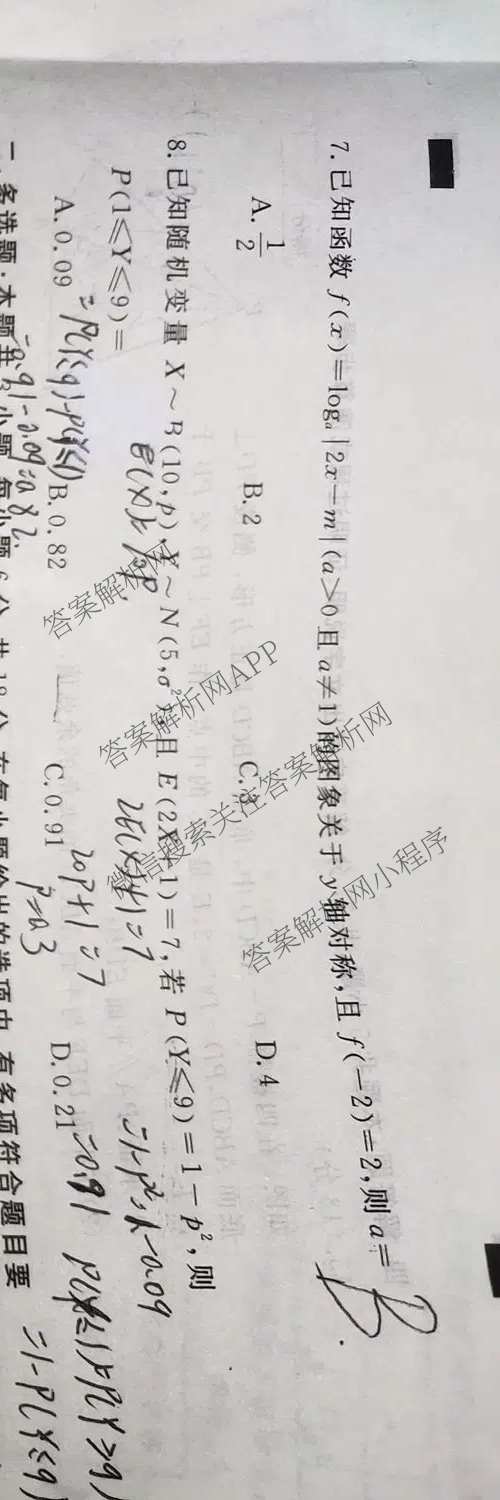 7.已知函数 f(x)=logₐ|2x-m|(a>0且a≠1)的图象关于y轴对称,且 f(-2)=2,则a=
B.
A. 1/2 B. 2 C. D. 4
8.已知随机变量 X～B(10,p),Y～N(5,σ²),且 E(2X+1)=7,若 P(Y≤9)=1-p²,则
P(1≤Y≤9)=
=1-p²=1-0.09
2E(X)+1=7
A. 0.09 B. 0.82 C. 0.91 D. 0.21
=P(Y≤9)-P(Y≤1)
20p+1=7
=0.91
P(Y≤1)=P(Y≥9)
p=0.3
=0.91-0.09=0.82
=1-P(Y≤9)
多选题:本题共3小题,每小题6分,共18分.在每小题给出的选项中,有多项符合题目要
答案解析网
答案解析网APP
微信搜索关注答案解析网
答案解析网小程序